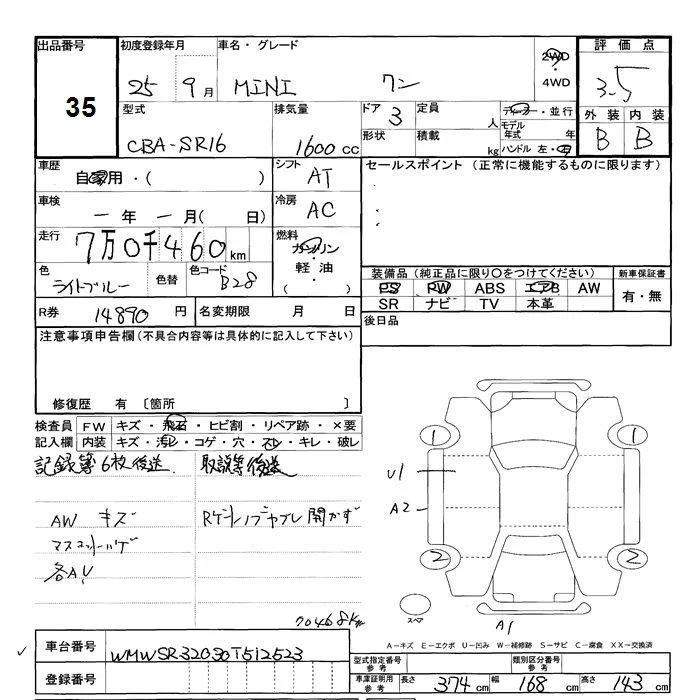 出品番号 初度登録年月 車名・グレード 評価点
35
25 9月 MINI ワン 2WD 4WD 3.5
型式 排気量 ドア 3 定員 人 ディーラー・並行 外装 内装
モデル年式 年
CBA-SR16 1600cc 形状 積載 kg ハンドル 左・右 B B
車歴 自家用・( ) シフト AT セールスポイント (正常に機能するものに限ります)
車検 一年一月( 日) 冷房 AC
走行 7万0千460km 燃料 ガソリン 軽油 ( )
色 ライトブルー 色替 色コード B28
装備品(純正品に限り○をつけてください) 新車保証書
PS PW ABS エアB AW 有・無
SR ナビ TV 本革
R券 14890円 名変期限 月 日 後日品
注意事項申告欄(不具合内容等は具体的に記入して下さい)
修復歴 有 〔箇所 〕
検査員 FW キズ・飛石・ヒビ割・リペア跡・×要
記入欄 内装 キズ・汚レ・コゲ・穴・スレ・キレ・破レ
記録簿6枚後送 取説等後送
AW キズ
各AU
1 1
U1
A2
2 2
スペア A1
70468km
A-キズ E-エクボ U-凹み W-補修跡 S-サビ C-腐食 XX-交換済
車台番号 WMWSR32030T512523
登録番号
型式指定番号 参考 類別区分番号 参考
車庫証明用 参考 長さ 374cm 幅 168cm 高さ 143cm